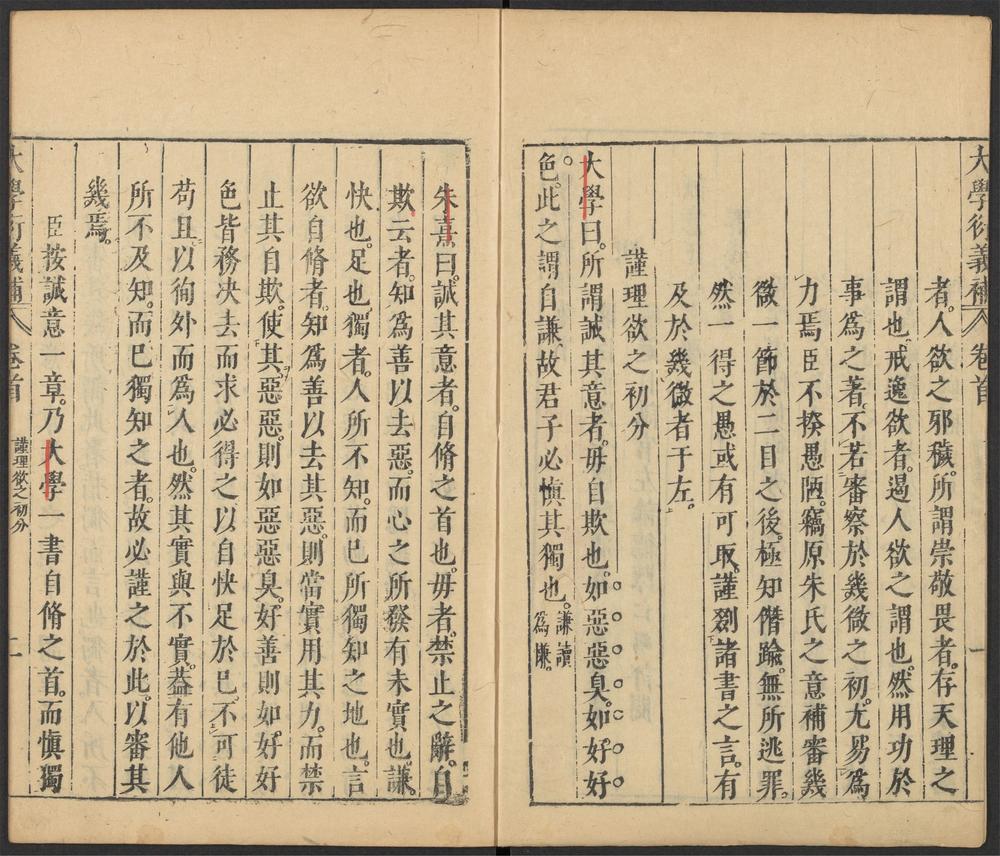 大學衍義補 卷首 一
者人欲之邪穢。所謂崇敬畏者。存天理之
謂也。戒逸欲者。遏人欲之謂也。然用功於
事爲之著。不若審察於幾微之初。尤易爲
力焉。臣不揆愚陋。竊原朱氏之意。補審幾
微一節於二目之後。極知僭踰。無所逃罪。
然一得之愚。或有可取。謹剟諸書之言。有
及於幾微者于左。
謹理欲之初分
大學曰。所謂誠其意者。毋自欺也。如惡惡臭。如好好
色。此之謂自謙。故君子必慎其獨也。謙讀爲慊。
朱熹曰。誠其意者。自脩之首也。毋者。禁止之辭。自
欺云者。知爲善以去惡。而心之所發有未實也。謙。
快也。足也。獨者。人所不知。而已所獨知之地也。言
欲自脩者。知爲善以去其惡。則當實用其力。而禁
止其自欺。使其惡惡。則如惡惡臭。好善則如好好
色。皆務決去而求必得之。以自快足於已。不可徒
苟且以徇外而爲人也。然其實與不實。葢有他人
所不及知。而已獨知之者。故必謹之於此。以審其
幾焉。
臣按誠意一章。乃大學一書自脩之首。而愼獨
大學衍義補 卷首 謹理欲之初分 二